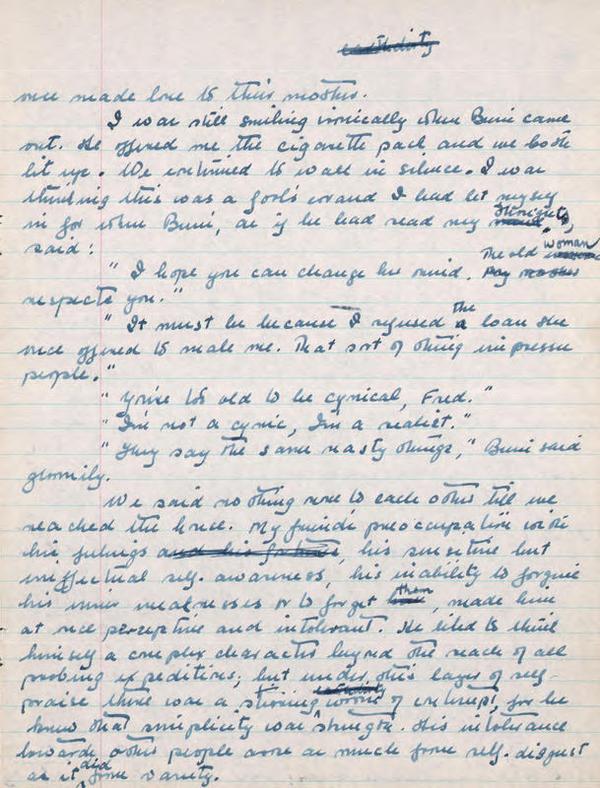 once made love to their mother.
I was still smiling ironically when Buni came
out. He offered me the cigarette pack and we both
lit up. We continued to walk in silence. I was
thinking this was a fool's errand I had let myself
in for when Buni, as if he had read my mind thoughts,
said:
" I hope you can change her mind. My mother The old woman
respects you."
" It must be because I refused a the loan she
once offered to make me. That sort of thing impresses
people."
" You're too old to be cynical, Fred."
" I'm not a cynic, I'm a realist."
" They say the same nasty things," Buni said
gloomily.
We said nothing more to each other till we
reached the house. My friend's preoccupation with
his failings and his failures, his sensitive but
ineffectual self-awareness, his inability to forgive
his inner weaknesses or to forget them, made him
at once perceptive and intolerant. He liked to think
himself a complex character beyond the reach of all
probing expeditions; but under this layer of self-
praise there was a strong of contempt, for he
knew that simplicity was strength. His intolerance
towards other people arose as much from self-disgust
as it did from vanity.